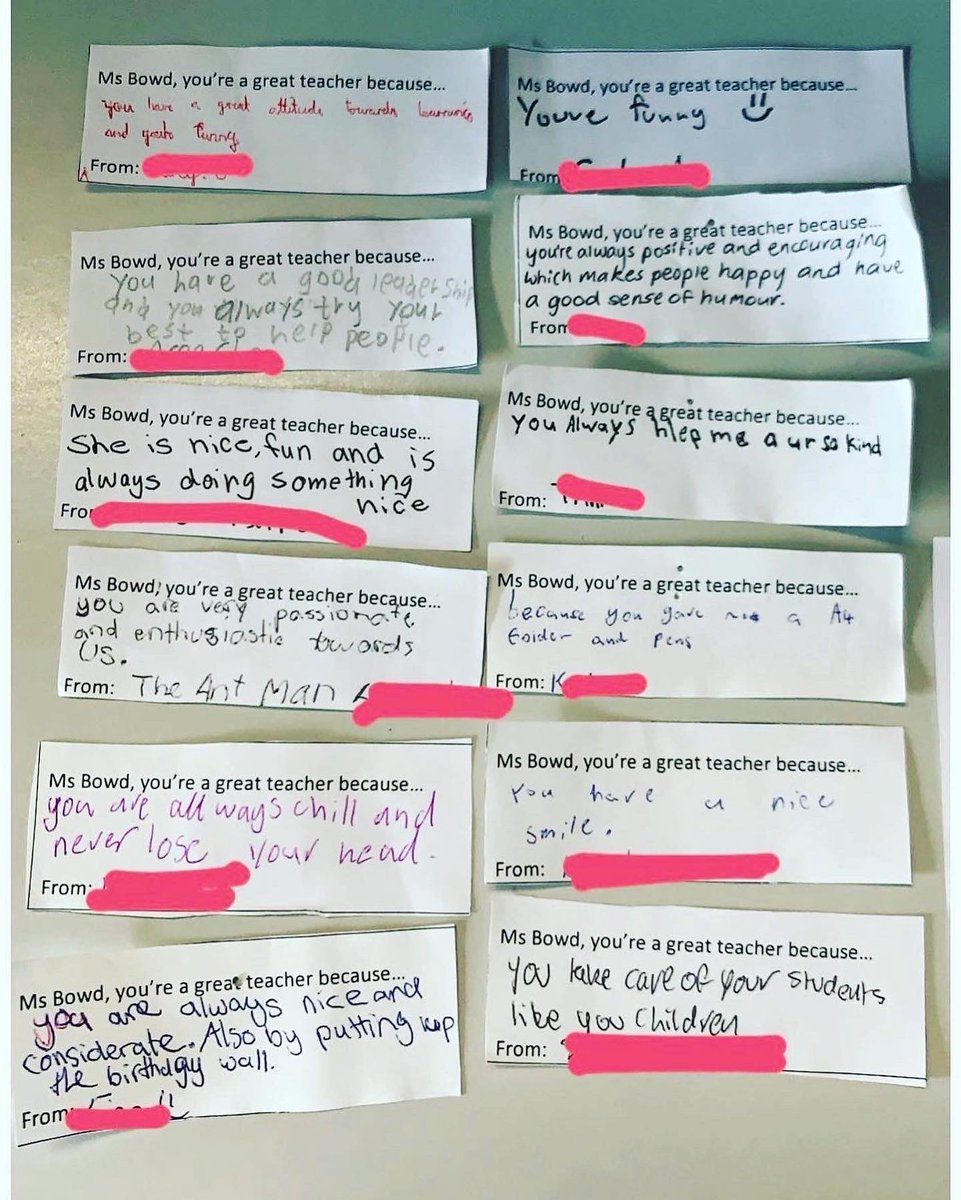 Ms Bowd, you're a great teacher because...
you have a great attitude towards learning
and you're funny
From:
Ms Bowd, you're a great teacher because...
You're funny
From
Ms Bowd, you're a great teacher because...
You have a good leadership
and you always try your
best to help people.
From:
Ms Bowd, you're a great teacher because...
you're always positive and encouraging
which makes people happy and have
a good sense of humour.
From
Ms Bowd, you're a great teacher because...
She is nice, fun and is
always doing something
nice
From
Ms Bowd, you're a great teacher because...
You Always hlep me a ur so kind
From:
Ms Bowd, you're a great teacher because...
you are very passionate
and enthusiastic towards
us.
From: The Ant Man
Ms Bowd, you're a great teacher because...
because you gave me a A4
folder and pens
From: K
Ms Bowd, you're a great teacher because...
you are all ways chill and
never lose your head.
From:
Ms Bowd, you're a great teacher because...
You have a nice
smile.
From:
Ms Bowd, you're a great teacher because...
you are always nice and
considerate. Also by putting up
the birthday wall.
From
Ms Bowd, you're a great teacher because...
You take care of your students
like you children
From: